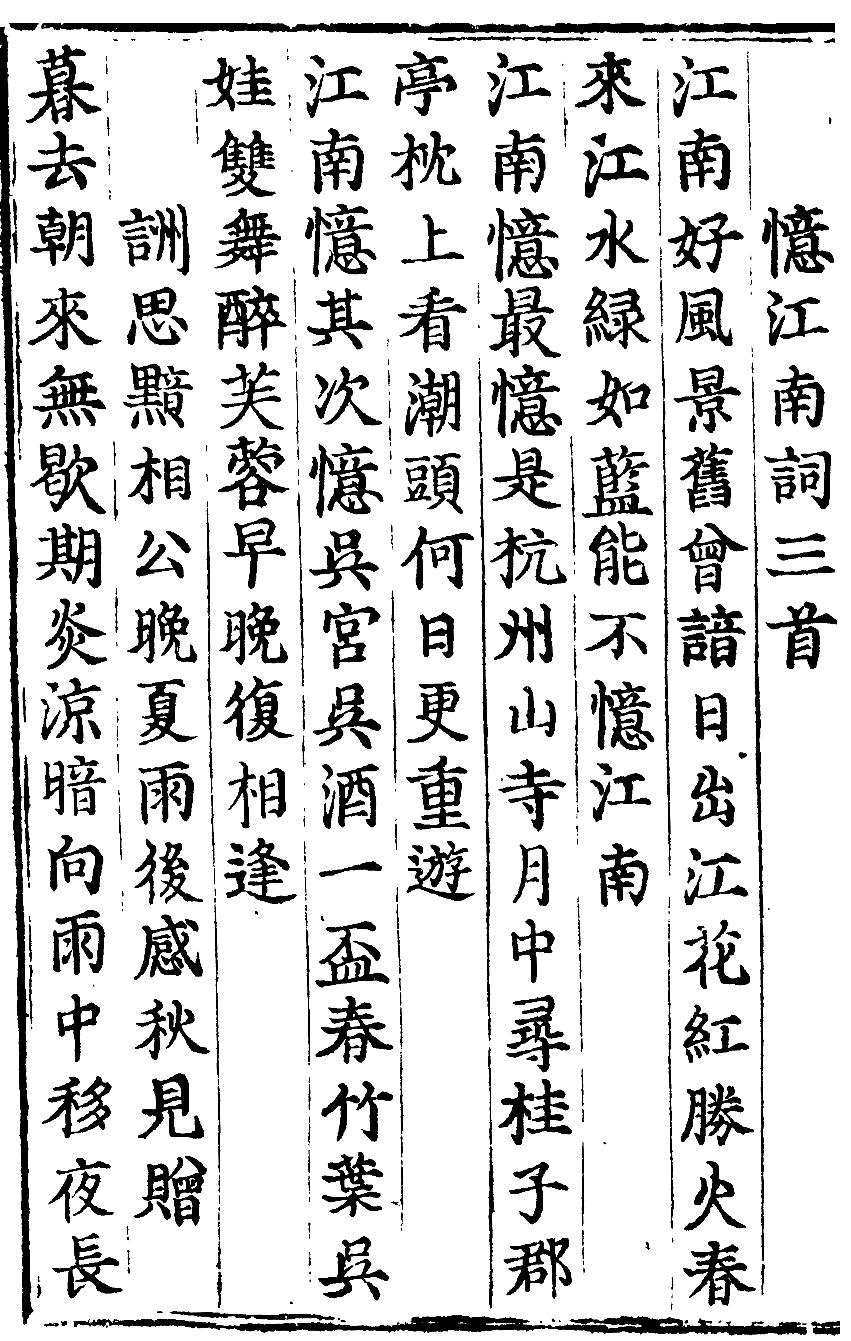 憶江南詞三首
江南好風景舊曾諳日出江花紅勝火春
來江水緑如藍能不憶江南
江南憶最憶是杭州山寺月中尋桂子郡
亭枕上看潮頭何日更重遊
江南憶其次憶吳宮吳酒一盃春竹葉吳
娃雙舞醉芙蓉早晚復相逢
詶思黯相公晚夏雨後感秋見贈
暮去朝來無歇期炎涼暗向雨中移夜長